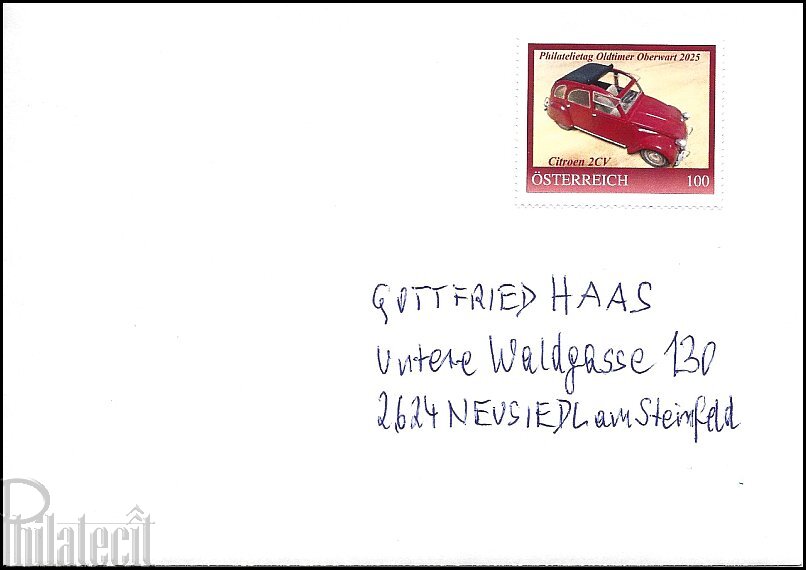 Philatelietag Oldtimer Oberwart 2025
Citroen 2CV
ÖSTERREICH 100
GOTTFRIED HAAS
Untere Waldgasse 130
2624 NEUSIEDL am Steinfeld
Philatecît